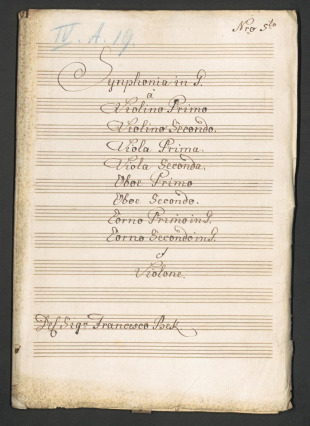 IV. A. 19.
Nro 5to
Synphonia in G.
à
Violino Primo
Violino Secondo.
Viola Prima.
Viola Seconda.
Oboe Primo
Oboe Secondo.
Corno Primo in G.
Corno Secondo in G.
e
Violone.
Del Sigr Francesco Beck